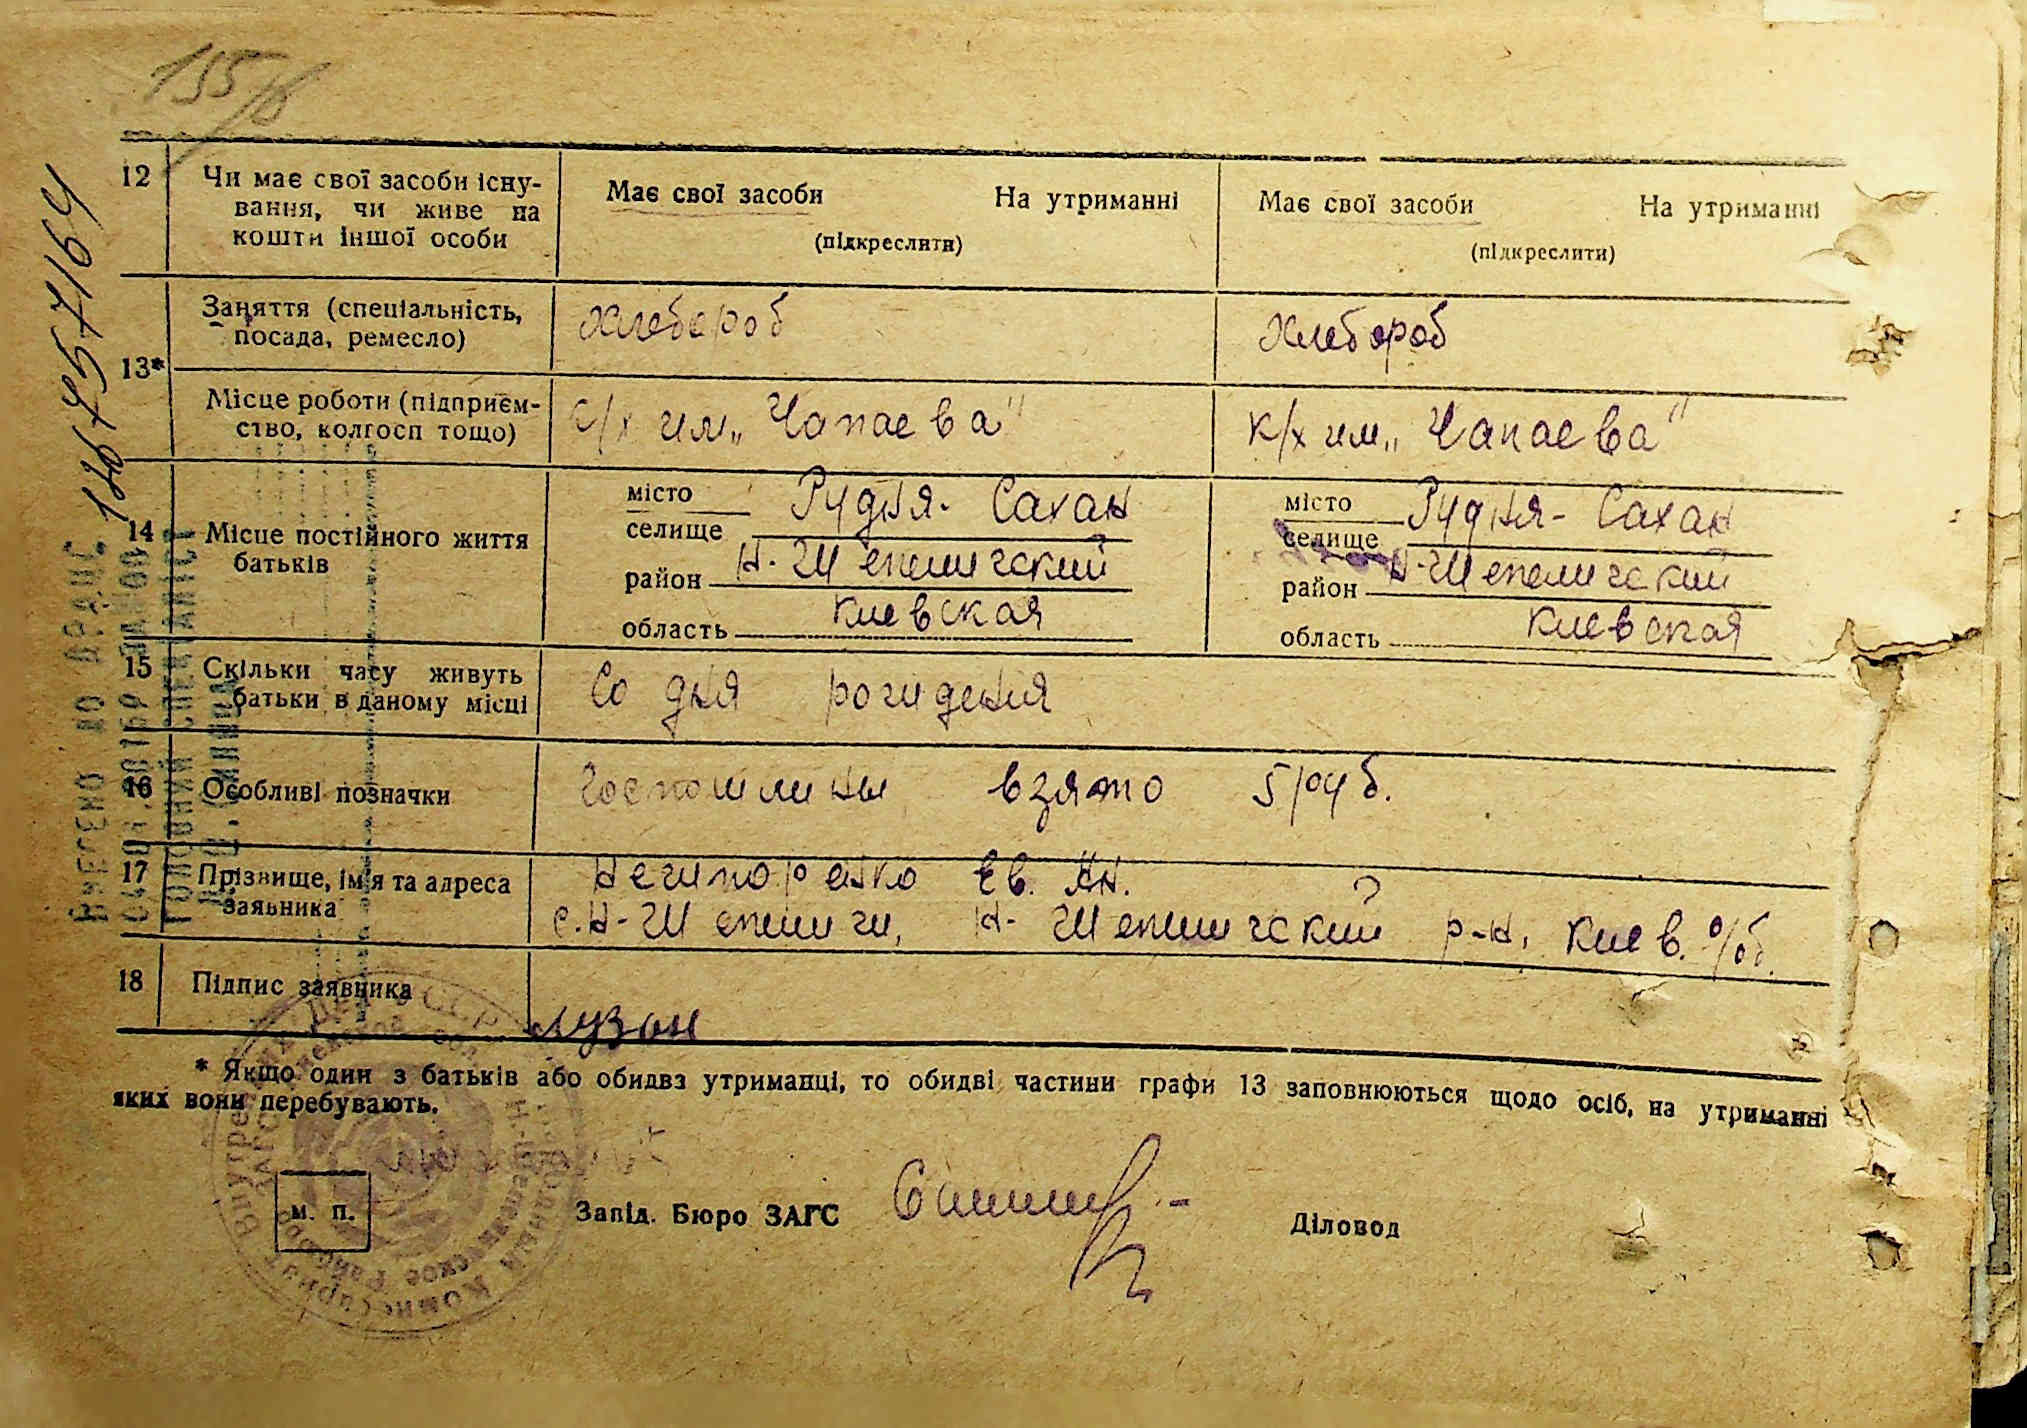 155/6
12 Чи має свої засоби існу- Має свої засоби На утриманні Має свої засоби На утриманні
вання, чи живе на
кошти іншої особи (підкреслити) (підкреслити)
Заняття (спеціальність, Хлебороб Хлебороб
посада, ремесло)
13*
Місце роботи (підприєм- с/х им „Чапаева" к/х им „Чапаева"
ство, колгосп тощо)
місто Рудня-Сахан місто Рудня-Сахан
14 Місце постійного життя селище селище
батьків район Н-Шепеличский район Н-Шепеличский
область Киевская область Киевская
15 Скільки часу живуть Со дня рождения
батьки в даному місці
16 Особливі позначки Госпошлины взято 5 руб.
17 Прізвище, ім'я та адреса Нечипоренко Ев. Ан.
заявника с. Н-Шепеличи, Н-Шепеличский р-н, Киев. о/бл.
18 Підпис заявника
* Якщо один з батьків або обидва утриманці, то обидві частини графи 13 заповнюються щодо осіб, на утриманні
яких вони перебувають.
м. п. Завід. Бюро ЗАГС Діловод
ВНЕСЕНО ДО ДРАЦС
ГОЛОВНИЙ СПЕЦІАЛІСТ
Народный Комиссариат Внутренних Дел УССР